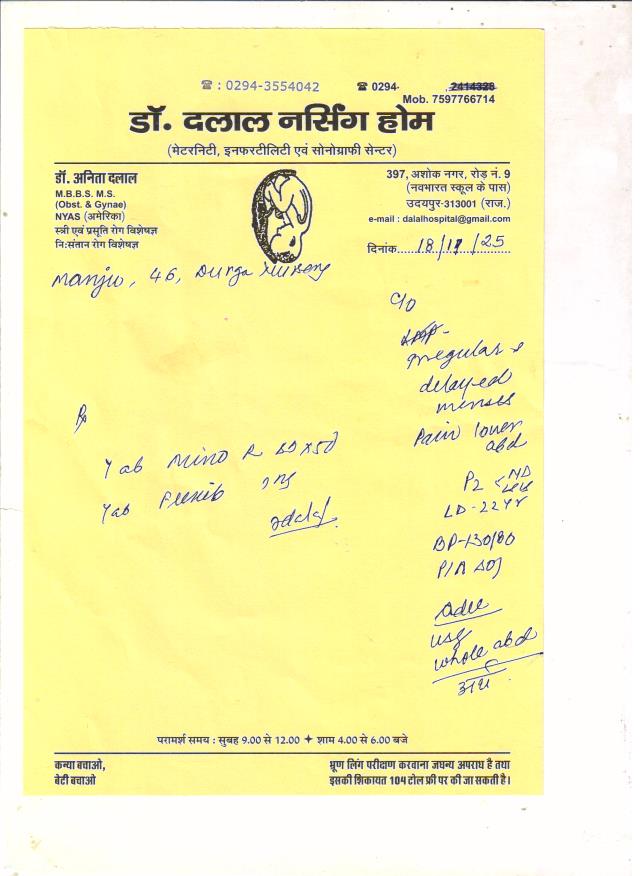 ☎ : 0294-3554042
☎ 0294- 2414328
Mob. 7597766714
डॉ. दलाल नर्सिंग होम
(मेटरनिटी, इनफरटीलिटी एवं सोनोग्राफी सेन्टर)
डॉ. अनिता दलाल
M.B.B.S. M.S.
(Obst. & Gynae)
NYAS (अमेरिका)
स्त्री एवं प्रसूति रोग विशेषज्ञ
नि:संतान रोग विशेषज्ञ
397, अशोक नगर, रोड़ नं. 9
(नवभारत स्कूल के पास)
उदयपुर-313001 (राज.)
e-mail : dalalhospital@gmail.com
दिनांक 18/11/25
Manju, 46, Durga
C/O
Irregular &
delayed
menses
Pain lower
abd
P2 ND
LD-22yr
BP-130/80
P/A soft
Adv
USG
whole abd
Rx
Tab Mino
Tab
परामर्श समय : सुबह 9.00 से 12.00 ✦ शाम 4.00 से 6.00 बजे
कन्या बचाओ,
बेटी बचाओ
भ्रूण लिंग परीक्षण करवाना जघन्य अपराध है तथा
इसकी शिकायत 104 टोल फ्री पर की जा सकती है।